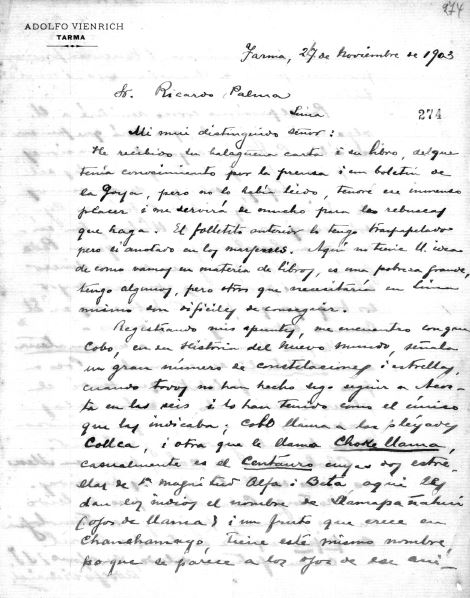 274
ADOLFO VIENRICH
TARMA
Tarma, 27 de Noviembre de 1903
Sr. Ricardo Palma
Lima
274
Mi mui distinguido señor:
He recibido su halagueña carta i su libro, del que
tenía conocimiento por la prensa i un boletin de
la Goya, pero no lo había leido, tendré ese inmenso
placer i me servirá de mucho para las rebuscas
que haga. El folletito anterior lo tengo traspapelado
pero si anotado en los margenes. Aquí no tiene U. idea
de como vamos en materia de libros, es una pobreza grande,
tengo algunos, pero otros que necesitaría en Lima
mismo son dificiles de conseguir.
Registrando mis apuntes, me encuentro con que
Cobo, en su Historia del Nuevo Mundo, señala
un gran número de constelaciones i estrellas,
cuando todos no han hecho sego seguir a Acos-
ta en las seis i lo han tenido como el único
que las indicaba; Cobo llama a las pléyades
Collca, i otra que le llama Choke llama,
casualmente es el Centauro cuyas dos estre-
llas de 1ª magnitud Alfa i Beta aquí les
dan los indios el nombre de Llamapañahui
(ojos de llama) i un fruto que crece en
Chanchamayo, tiene este mismo nombre,
porque se parece a los ojos de ese ani-